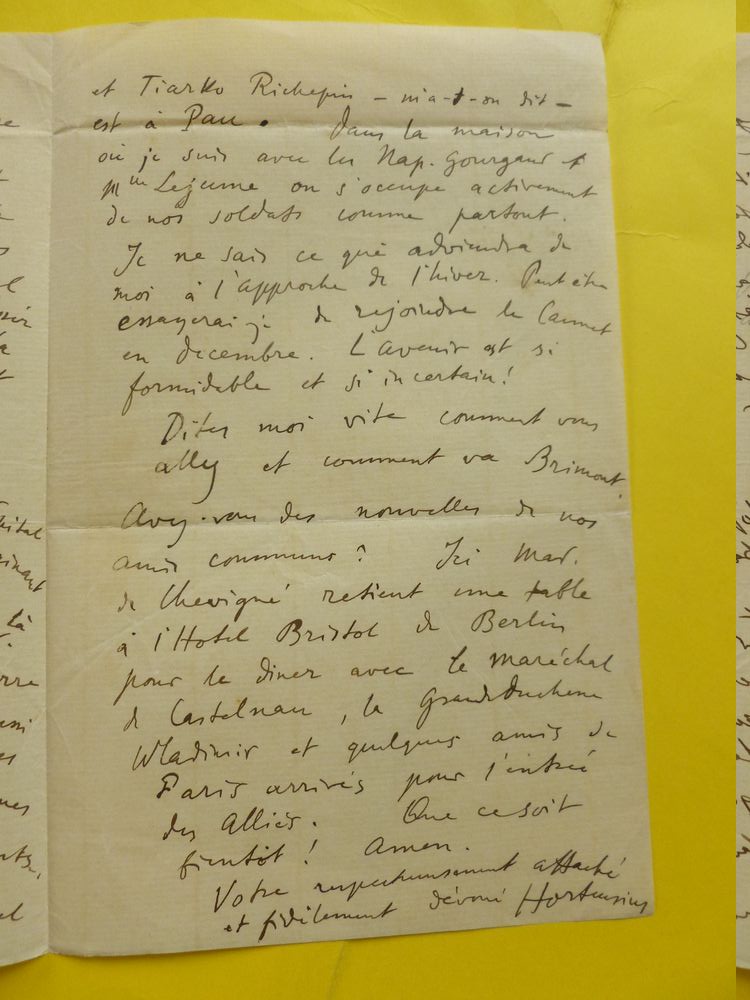 et Tiarko Richepin — m'a-t-on dit —
est à Pau. Dans la maison
où je suis avec les Nap. Gourgaud et
Mme Lejeune on s'occupe activement
de nos soldats comme partout.
Je ne sais ce que adviendra de
moi à l'approche de l'hiver. Peut être
essayerai-je de rejoindre le Cannet
en decembre. L'avenir est si
formidable et si incertain!
Dites moi vite comment vous
allez et comment va Brimont.
Avez-vous des nouvelles de nos
amis communs? Ici Mad.
de Chevigné retient une table
à l'Hotel Bristol de Berlin
pour le diner avec le maréchal
de Castelnau, la Grande Duchesse
Wladimir et quelques amis de
Paris arrivés pour l'entrée
des Alliés. Que ce soit
bientôt! Amen.
Votre respectueusement attaché
et fidèlement dévoué Hortensius